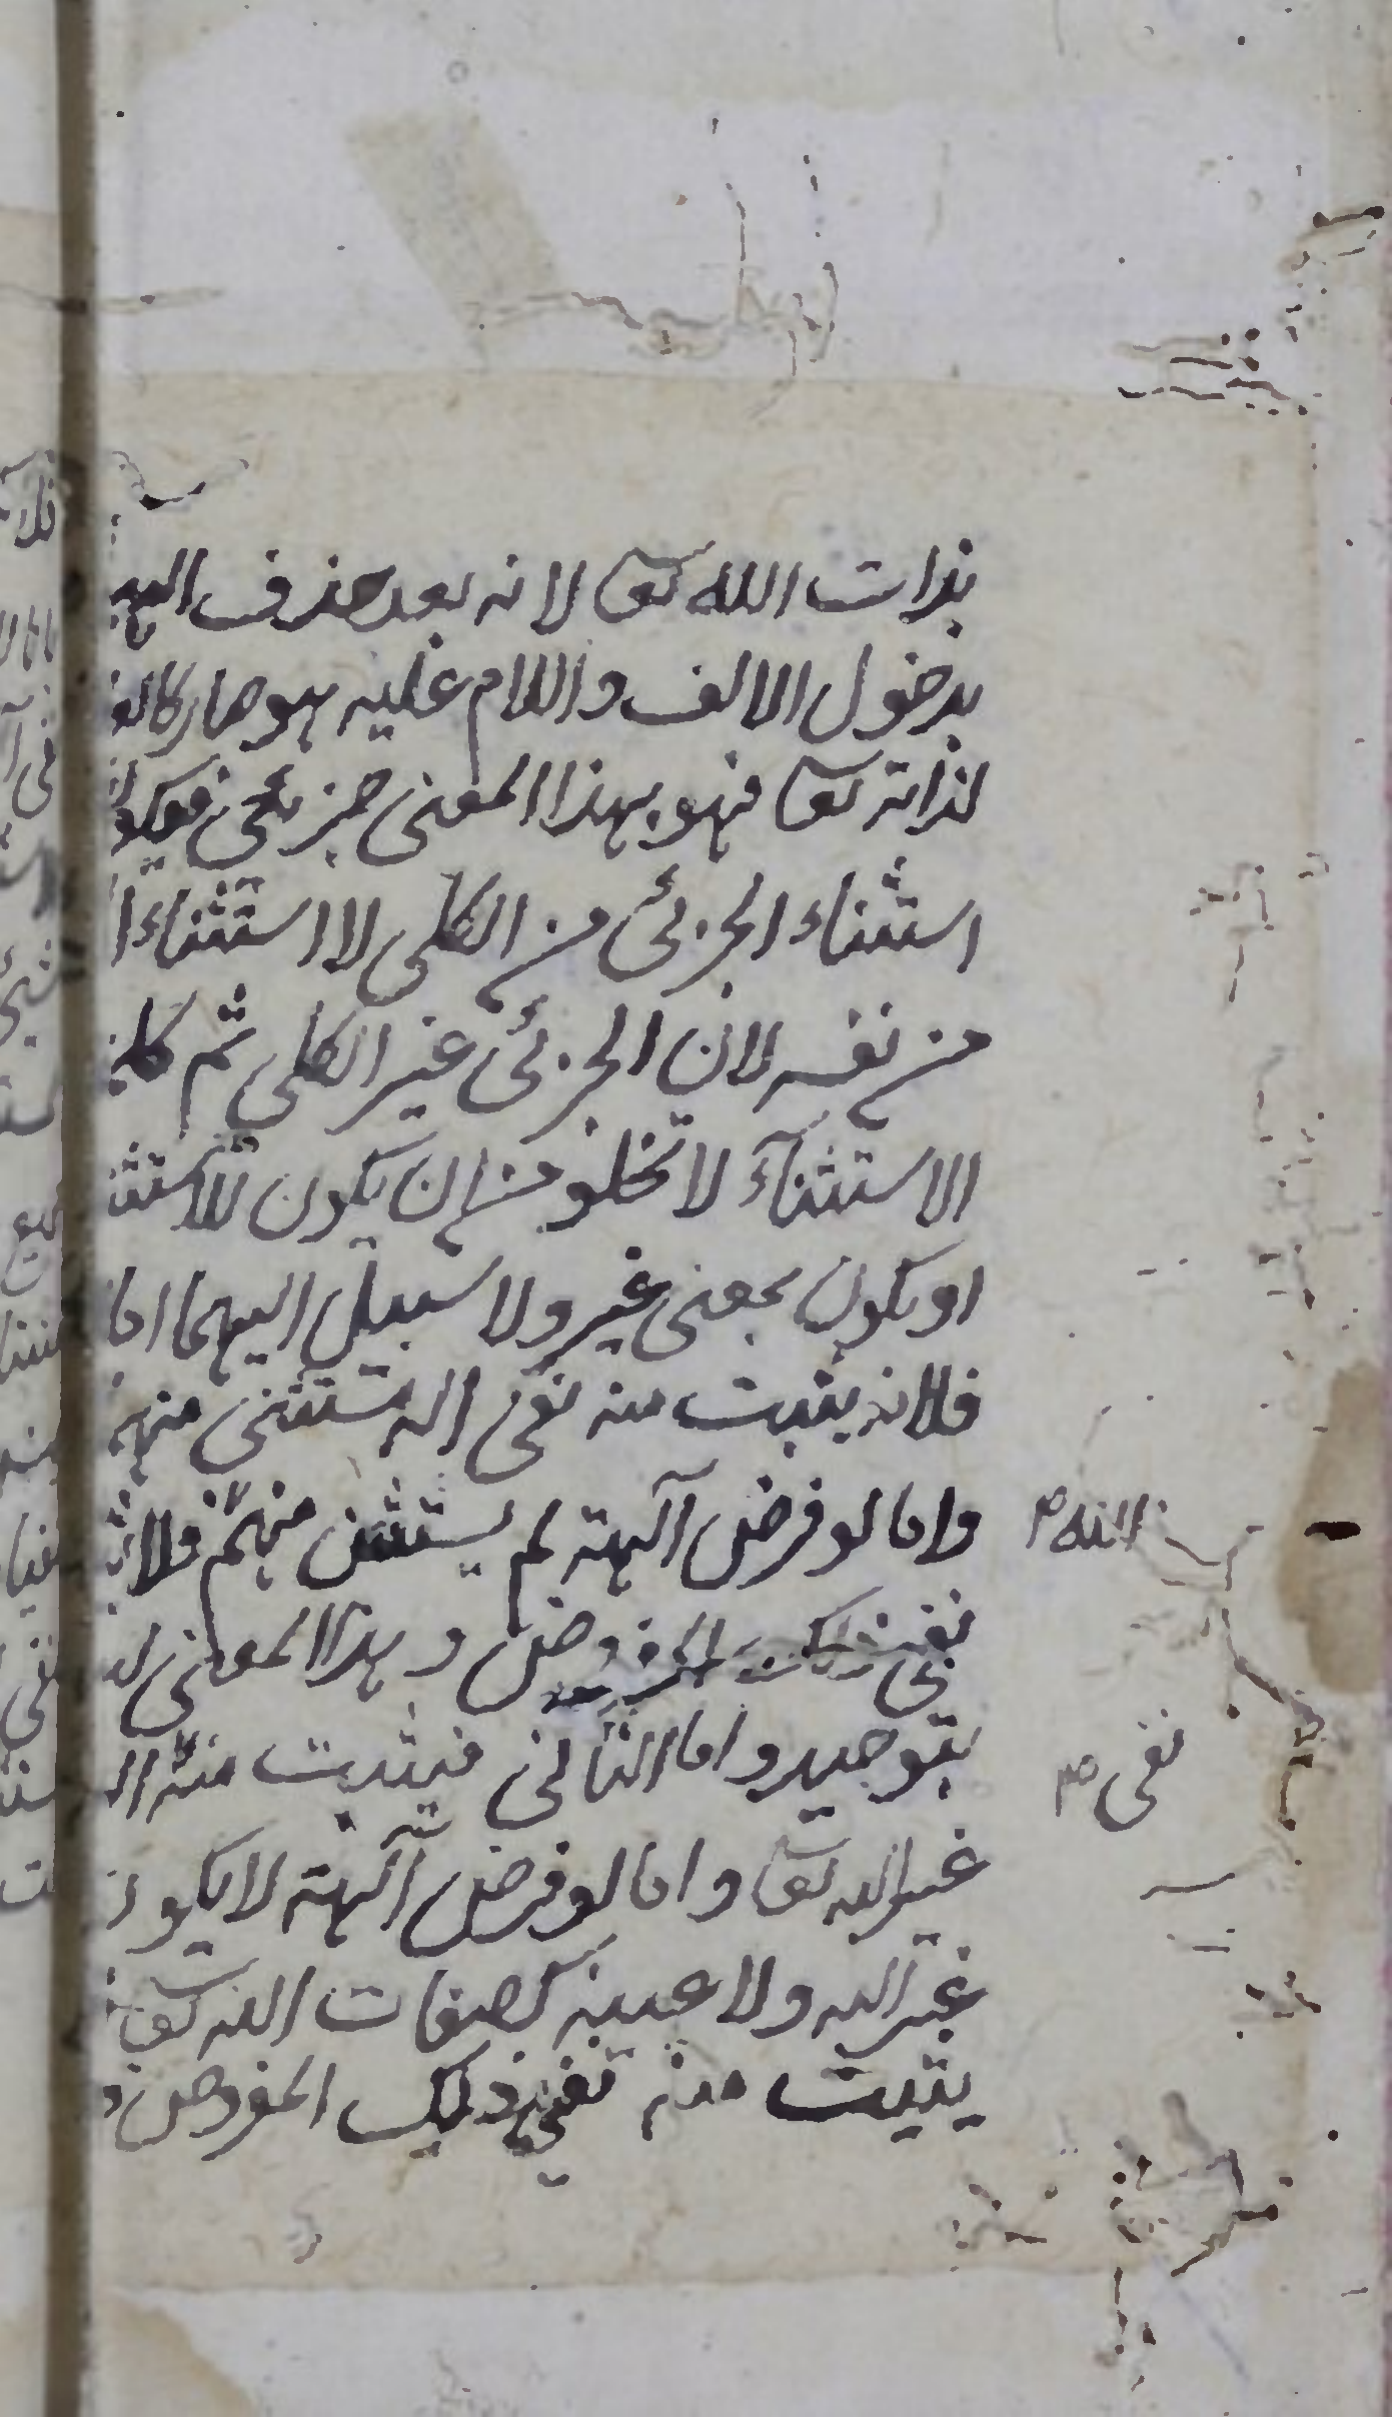 بذات الله تعا لانه بعد حذف الهمزة
بدخول الالف واللام عليه هو صار كالعلم
لذاته تعا فهو بهذا المعنى جزئى فيكون
استثناء الجزئى من الكلى لا استثناء ا
من نفسه لان الجزئى غير الكلى ثم كلمة
الاستثنآء لا تخلو من ان يكون للاستثنا
او يكون بمعنى غير ولا سبيل اليهما اما
فلانه يثبت منه نفى اله مستثنى منهم
واما لو فرض آلهة لم يستثن منهم فلا
الله ص
نفى ذلك المفروض وهذا المعنى
بتوحيد واما الثانى فيثبت منه
نفى ص
غير الله تعا واما لو فرض آلهة لا يكون
غير الله ولا عينه كصفات الله تعا
يثبت منه نفى ذلك المفروض